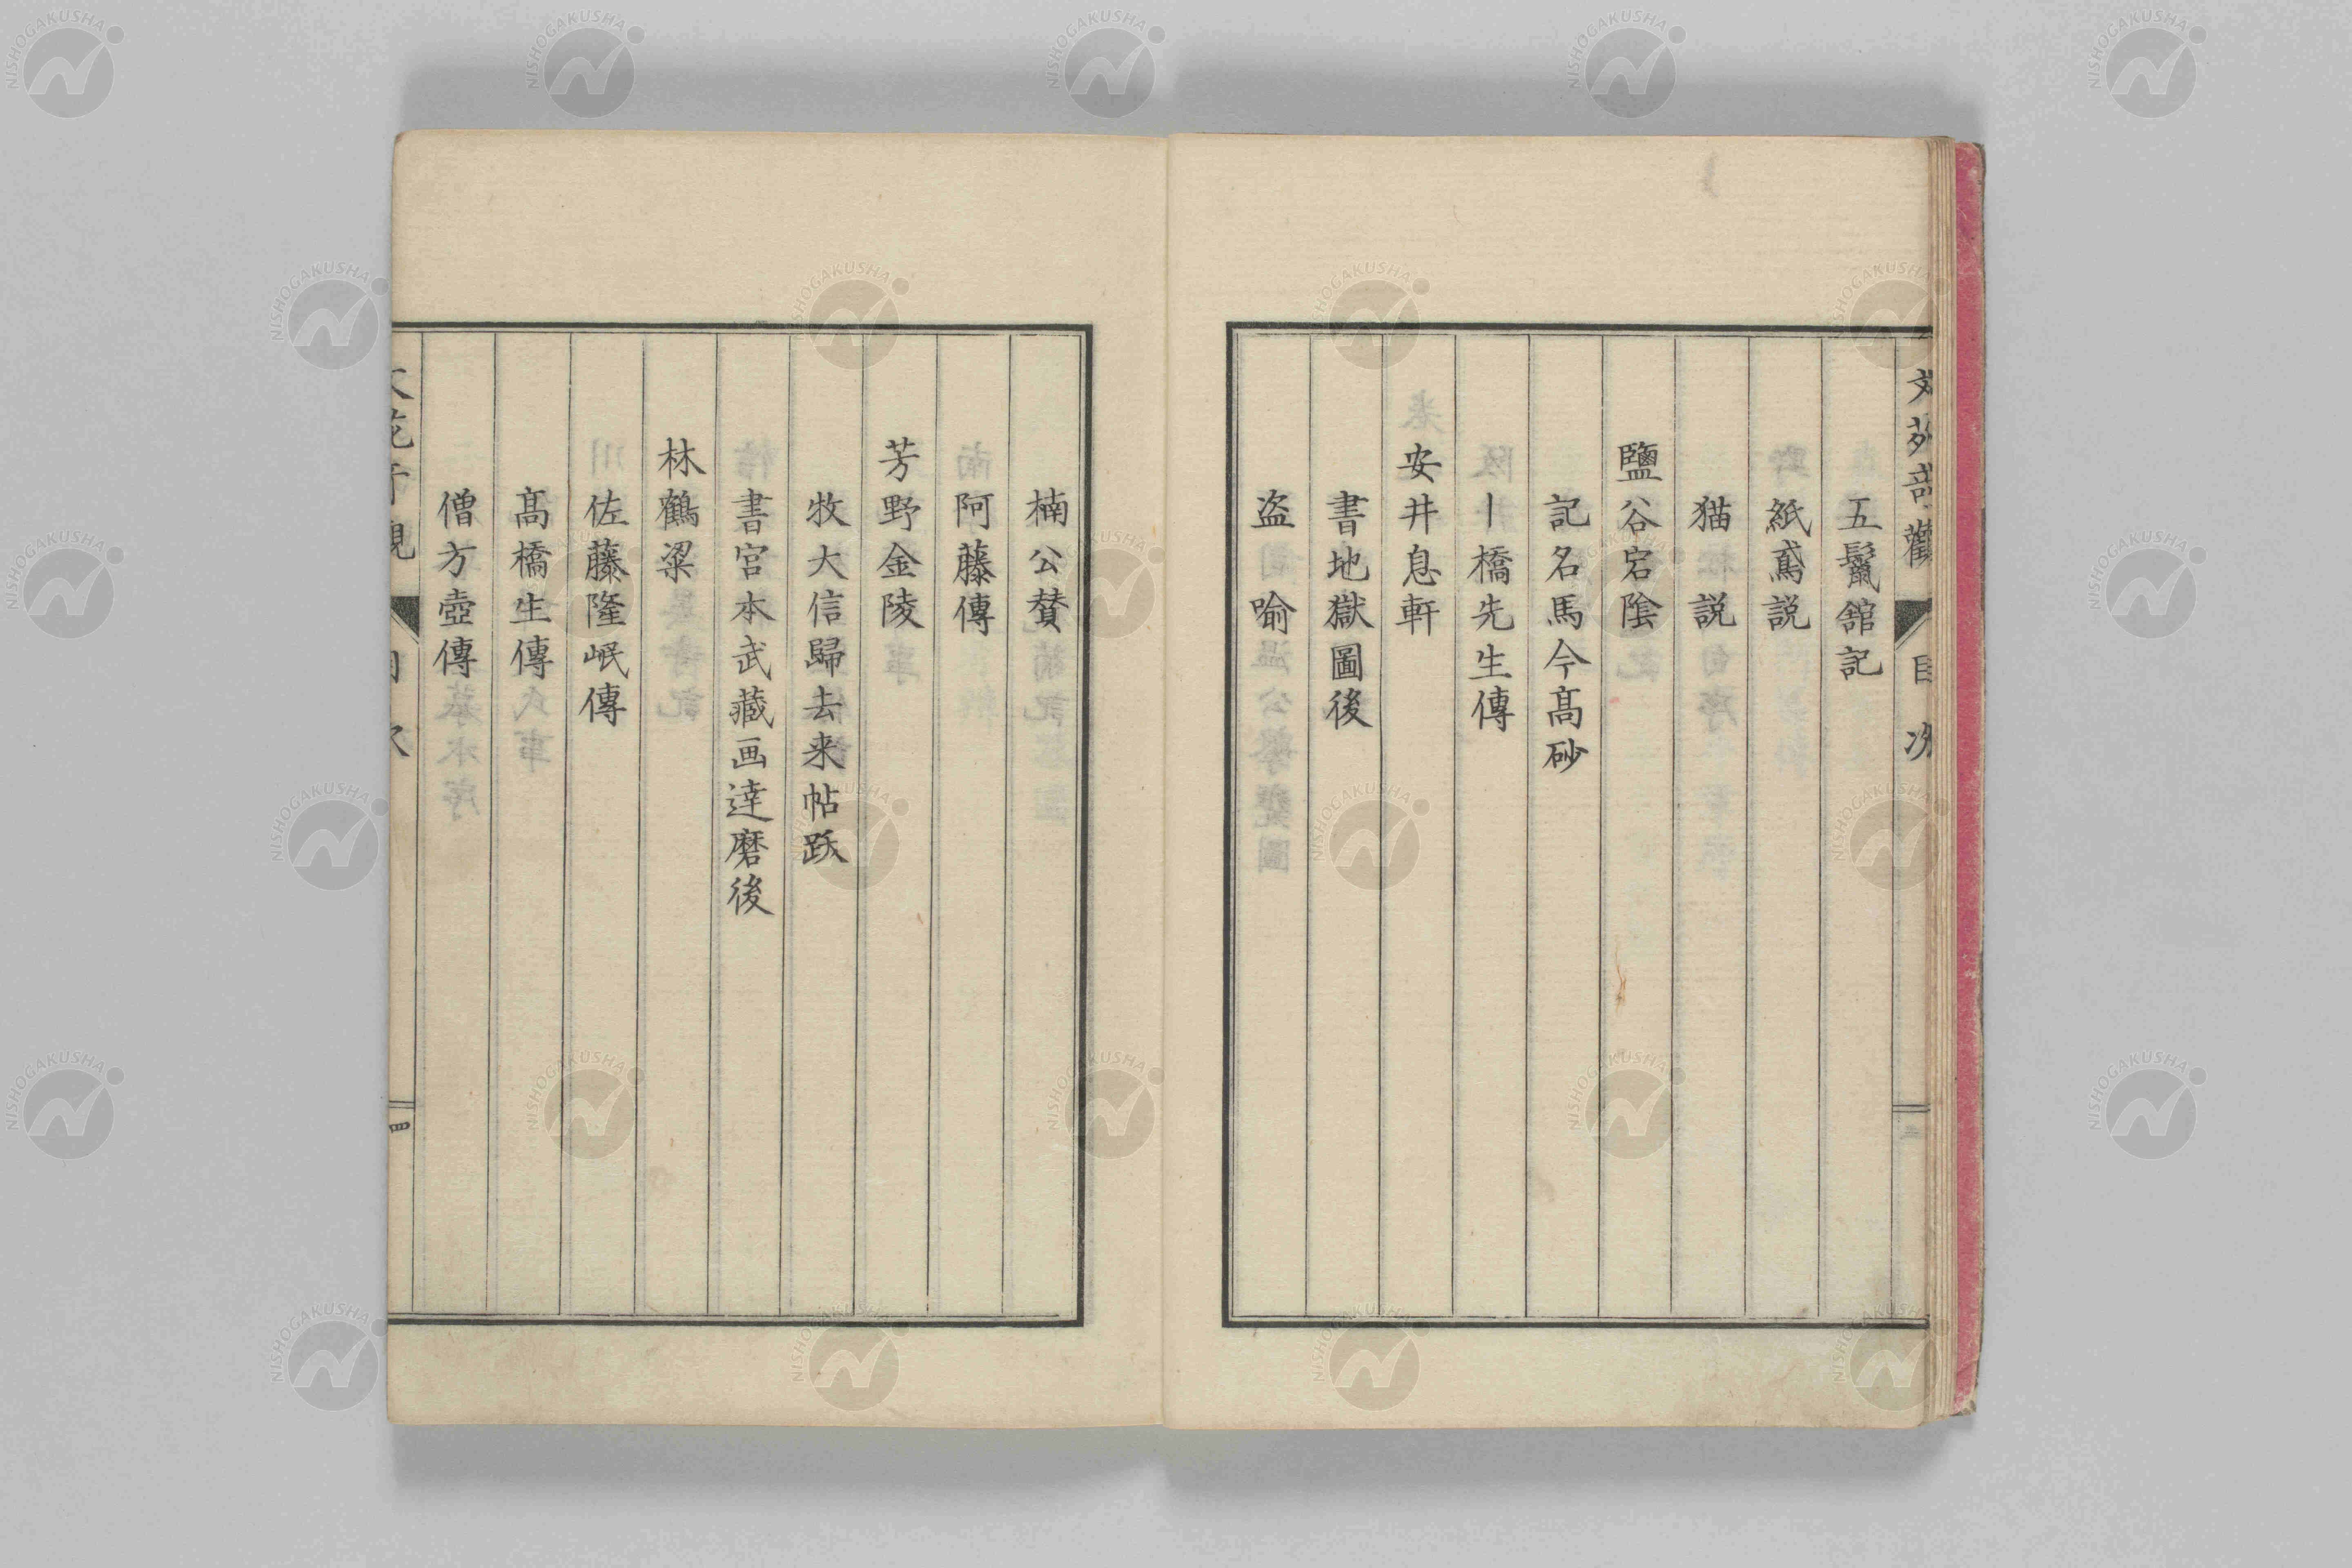 目次
五鬣舘記
紙鳶説
猫説
鹽谷宕陰
記名馬今髙砂
一橋先生傳
安井息軒
書地獄圖後
盗喻
楠公賛
阿藤傳
芳野金陵
牧大信歸去来帖跋
書宮本武藏画達磨後
林鶴粱
佐藤隆岷傳
髙橋生傳
僧方壺傳
四
NISHOGAKUSHA